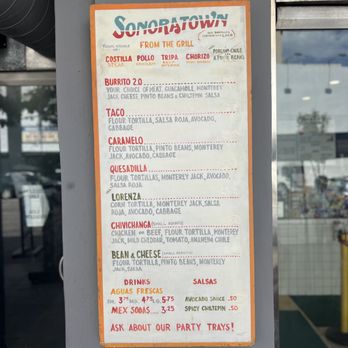 SONORATOWN
FROM THE GRILL
COSTILLA POLLO TRIPA CHORIZO
STEAK
BURRITO 2.0
YOUR CHOICE OF MEAT, GUACAMOLE, MONTEREY
JACK, CHEESE, PINTO BEANS & CHILTEPIN SALSA
TACO
FLOUR TORTILLA, SALSA ROJA, AVOCADO,
CABBAGE
CARAMELO
FLOUR TORTILLA, PINTO BEANS, MONTEREY
JACK, AVOCADO, CABBAGE
QUESADILLA
FLOUR TORTILLAS, MONTEREY JACK, AVOCADO,
SALSA ROJA
LORENZA
CORN TORTILLA, MONTEREY JACK, SALSA
ROJA, AVOCADO, CABBAGE
CHIVICHANGA
CHICKEN OR BEEF, FLOUR TORTILLA, MONTEREY
JACK, MILD CHEDDAR, TOMATO, ANAHEIM CHILE
BEAN & CHEESE
FLOUR TORTILLA, PINTO BEANS, MONTEREY
JACK, SALSA
DRINKS SALSAS
AGUAS FRESCAS
SM. 3.75 MD. 4.75 LG. 5.75 AVOCADO SAUCE .50
MEX SODAS 3.25 SPICY CHILTEPIN .50
ASK ABOUT OUR PARTY TRAYS!